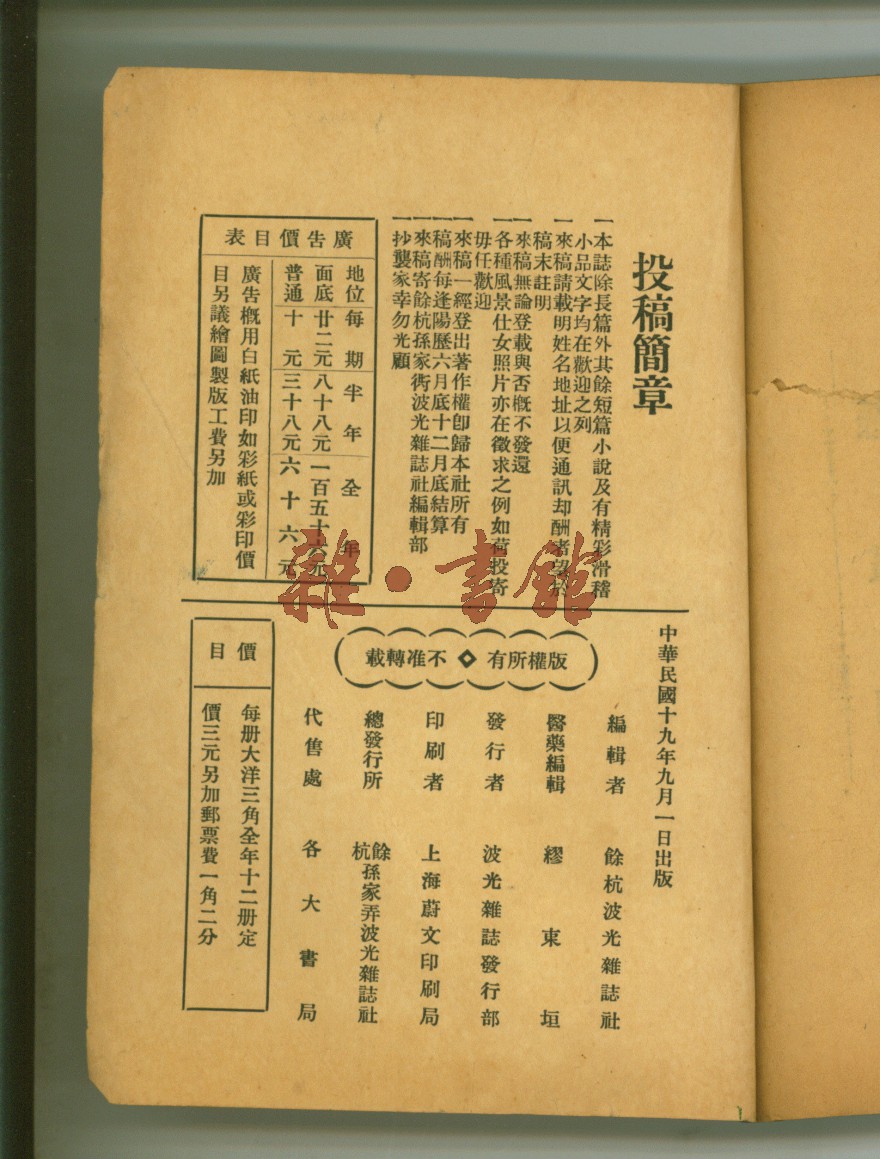 投稿簡章
一本誌除長篇外其餘短篇小說及有精彩滑稽
小品文字均在歡迎之列
一來稿請載明姓名地址以便通訊却酬者望於
稿末註明
一來稿無論登載與否概不發還
一各種風景仕女照片亦在徵求之例如荷投寄
毋任歡迎
一來稿一經登出著作權卽歸本社所有
一稿酬每逢陽歷六月底十二月底結算
一來稿寄餘杭孫家衖波光雜誌社編輯部
一抄襲家幸勿光顧
廣告價目表
地位每期半年全年
面底廿二元八十八元一百五十六元
普通十元三十八元六十六元
廣告概用白紙油印如彩紙或彩印價
目另議繪圖製版工費另加
雜·書館
中華民國十九年九月一日出版
版權所有◇不准轉載
編輯者 餘杭波光雜誌社
醫藥編輯 繆東垣
發行者 波光雜誌發行部
印刷者 上海蔚文印刷局
總發行所 餘杭孫家弄波光雜誌社
代售處 各大書局
價目
每册大洋三角全年十二册定
價三元另加郵票費一角二分